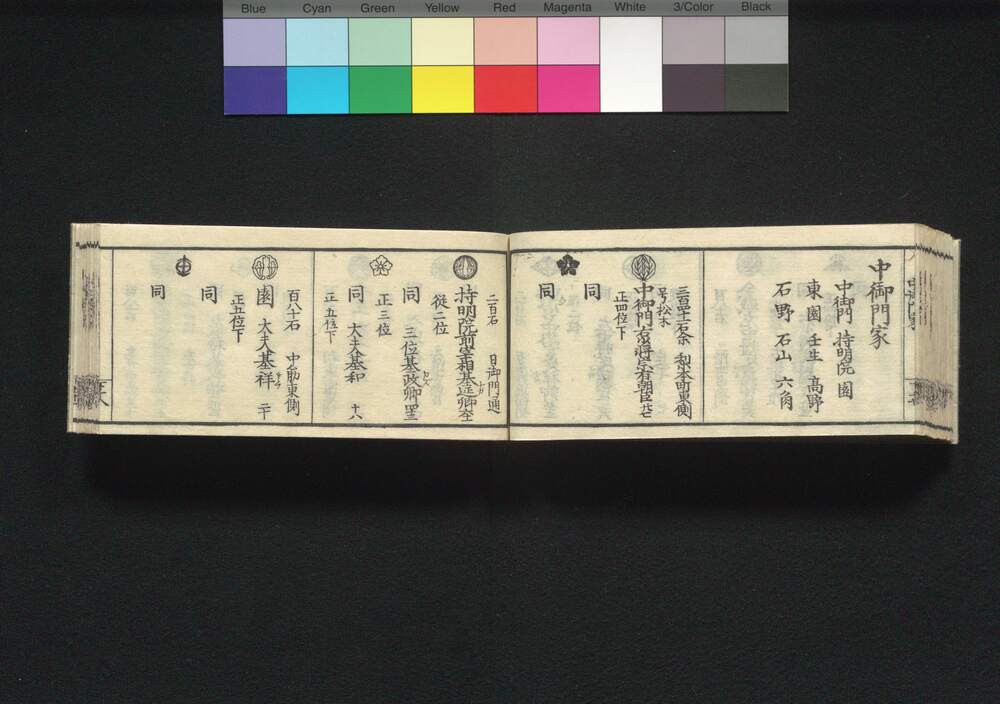 Blue Cyan Green Yellow Red Magenta White 3/Color Black
中御門家
中御門 持明院 園
東園 壬生 高野
石野 石山 六角
梨木町東側
号松木
中御門
朝臣
正四位下
同
同
二百石 日御門通
持明院前宰相基延卿
従二位
同 三位基政卿
正三位
同 大夫基和 十八
正五位下
百八十石 中筋東側
園 大夫基祥 二十
正五位下
同
同